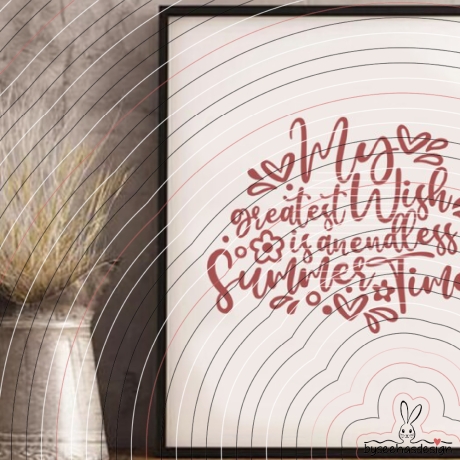 My
greatest Wish
is an endless
Summer Time